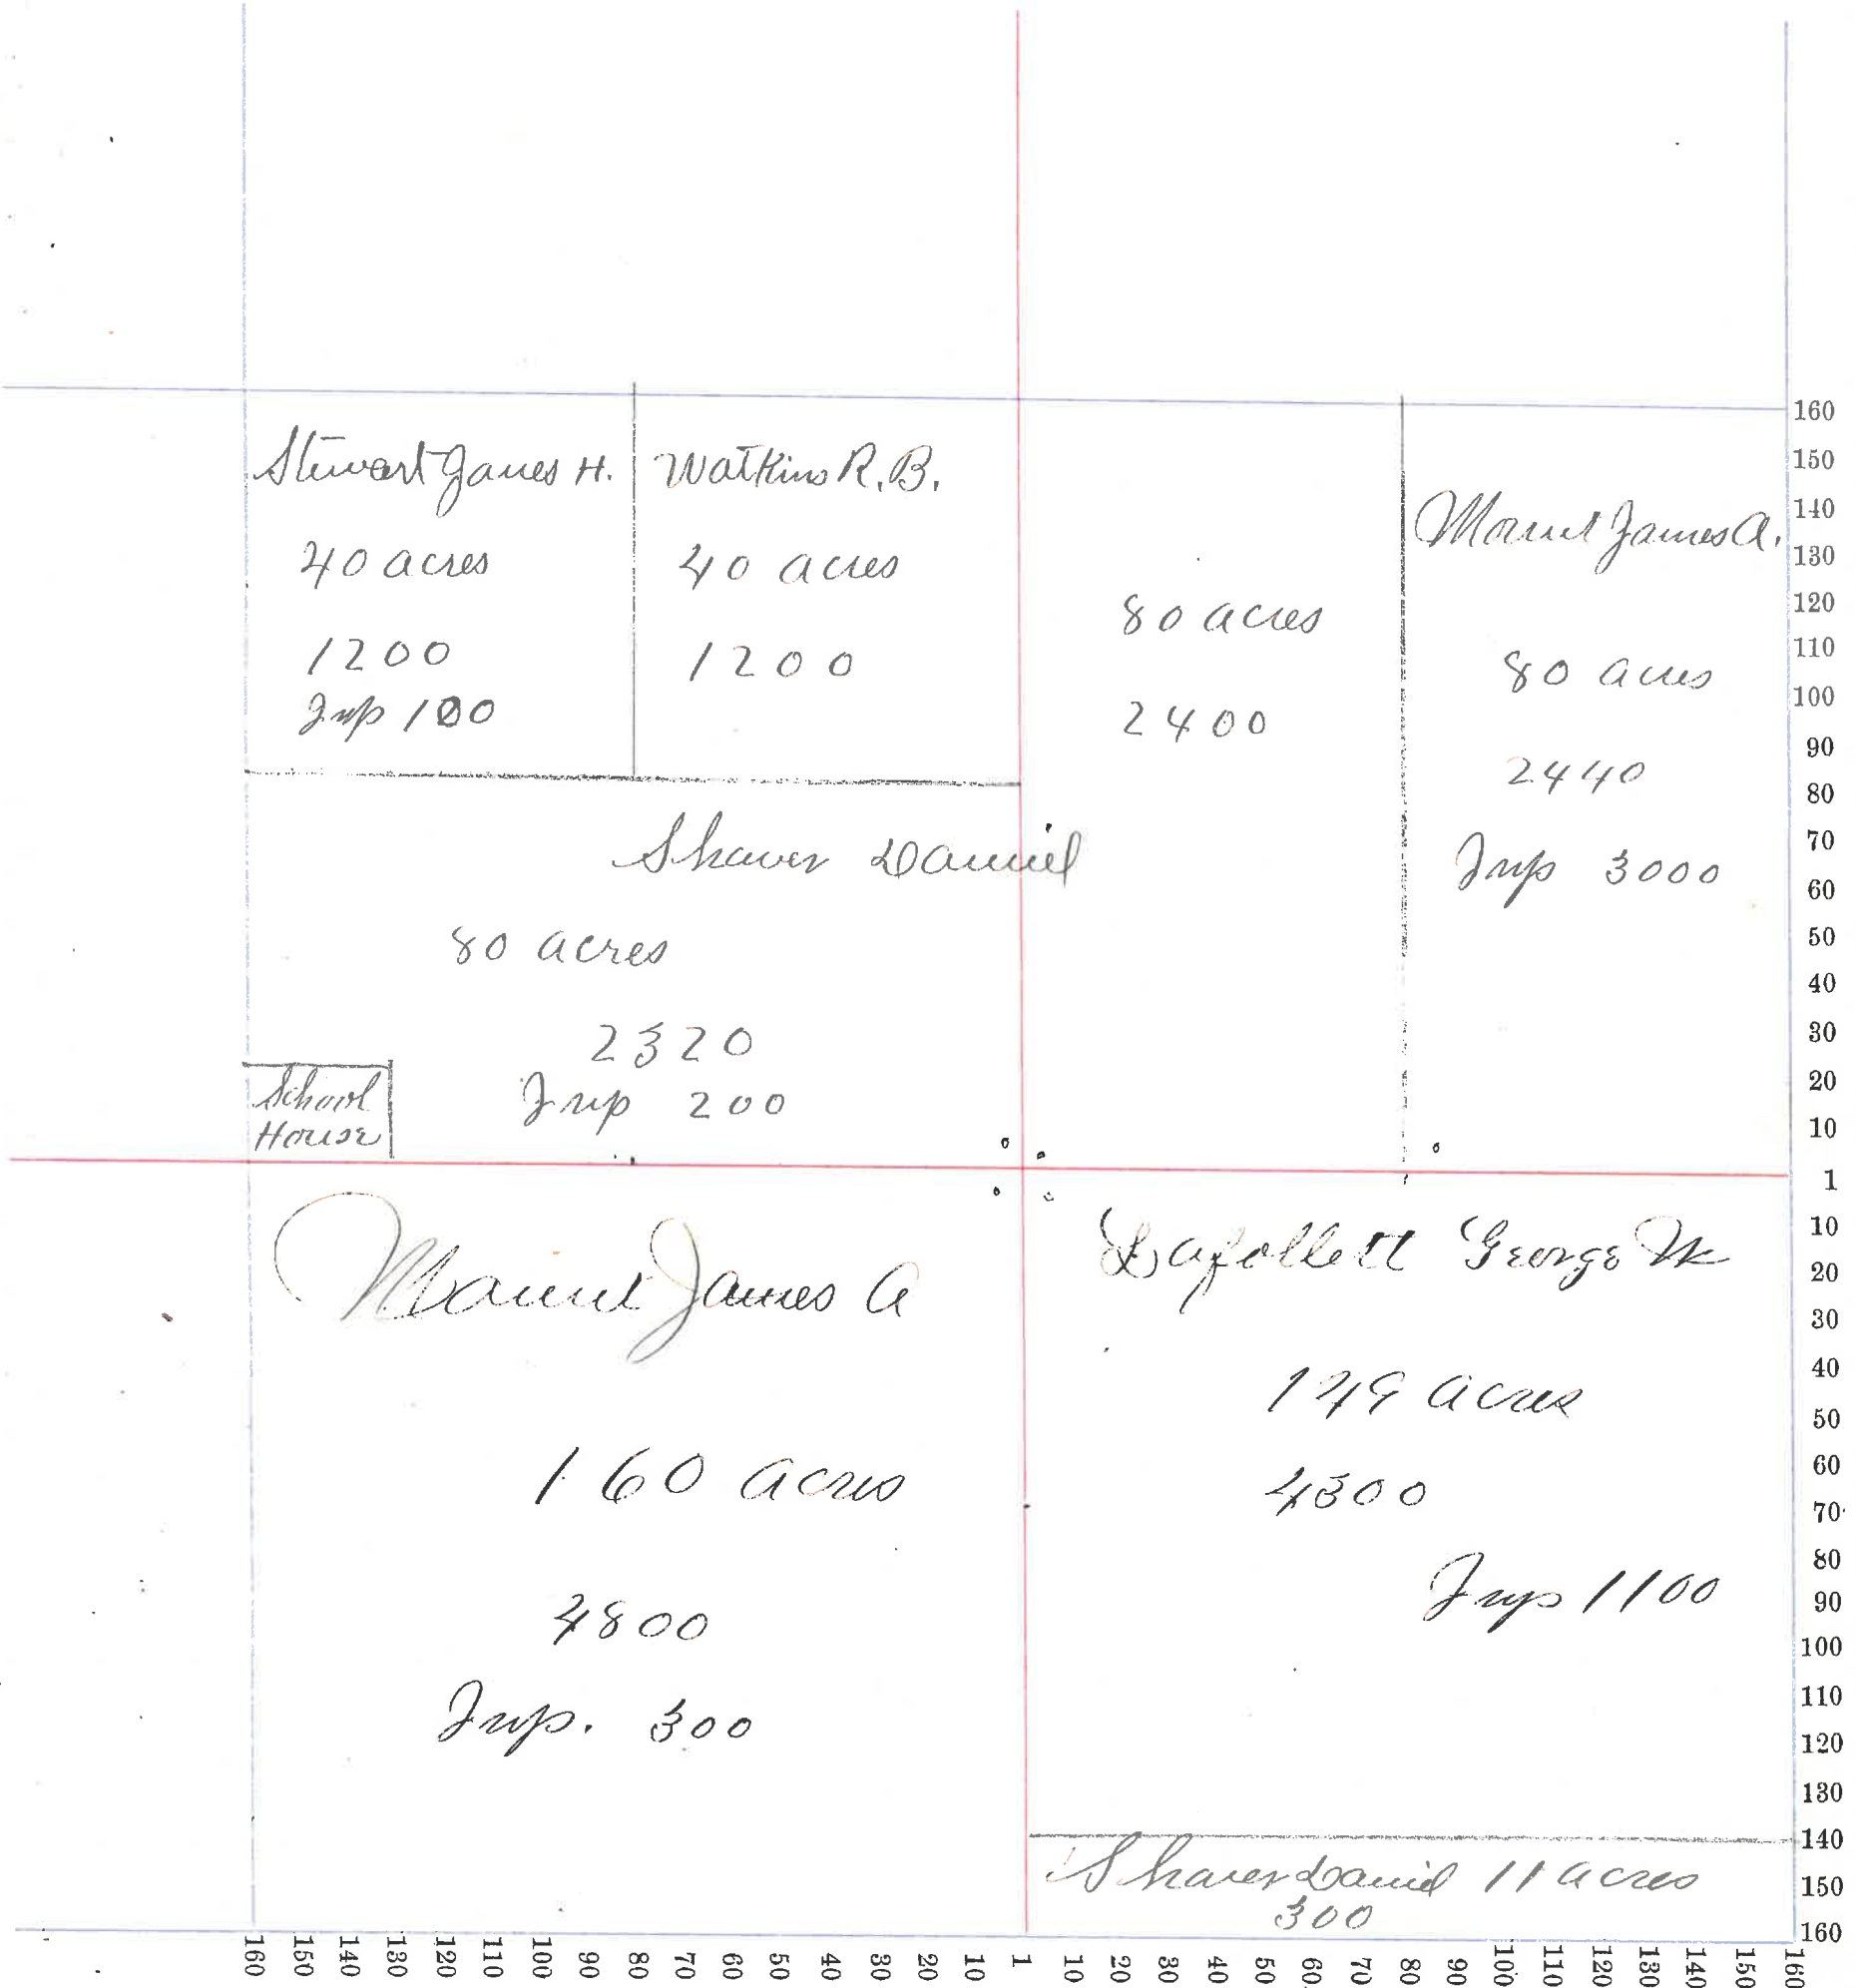 Stewart James H.
40 acres
1200
Imp 100
Watkins R. B.
40 acres
1200
80 acres
2400
Mount James A.
80 acres
2440
Imp 3000
Shaver Daniel
80 acres
2320
Imp 200
School
House
Mount James A
160 acres
4800
Imp. 300
Lafollett George W
149 acres
4300
Imp 1100
Shaver Daniel 11 acres
300
160
150
140
130
120
110
100
90
80
70
60
50
40
30
20
10
1
10
20
30
40
50
60
70
80
90
100
110
120
130
140
150
160
160 150 140 130 120 110 100 90 80 70 60 50 40 30 20 10 1 10 20 30 40 50 60 70 80 90 100 110 120 130 140 150 160